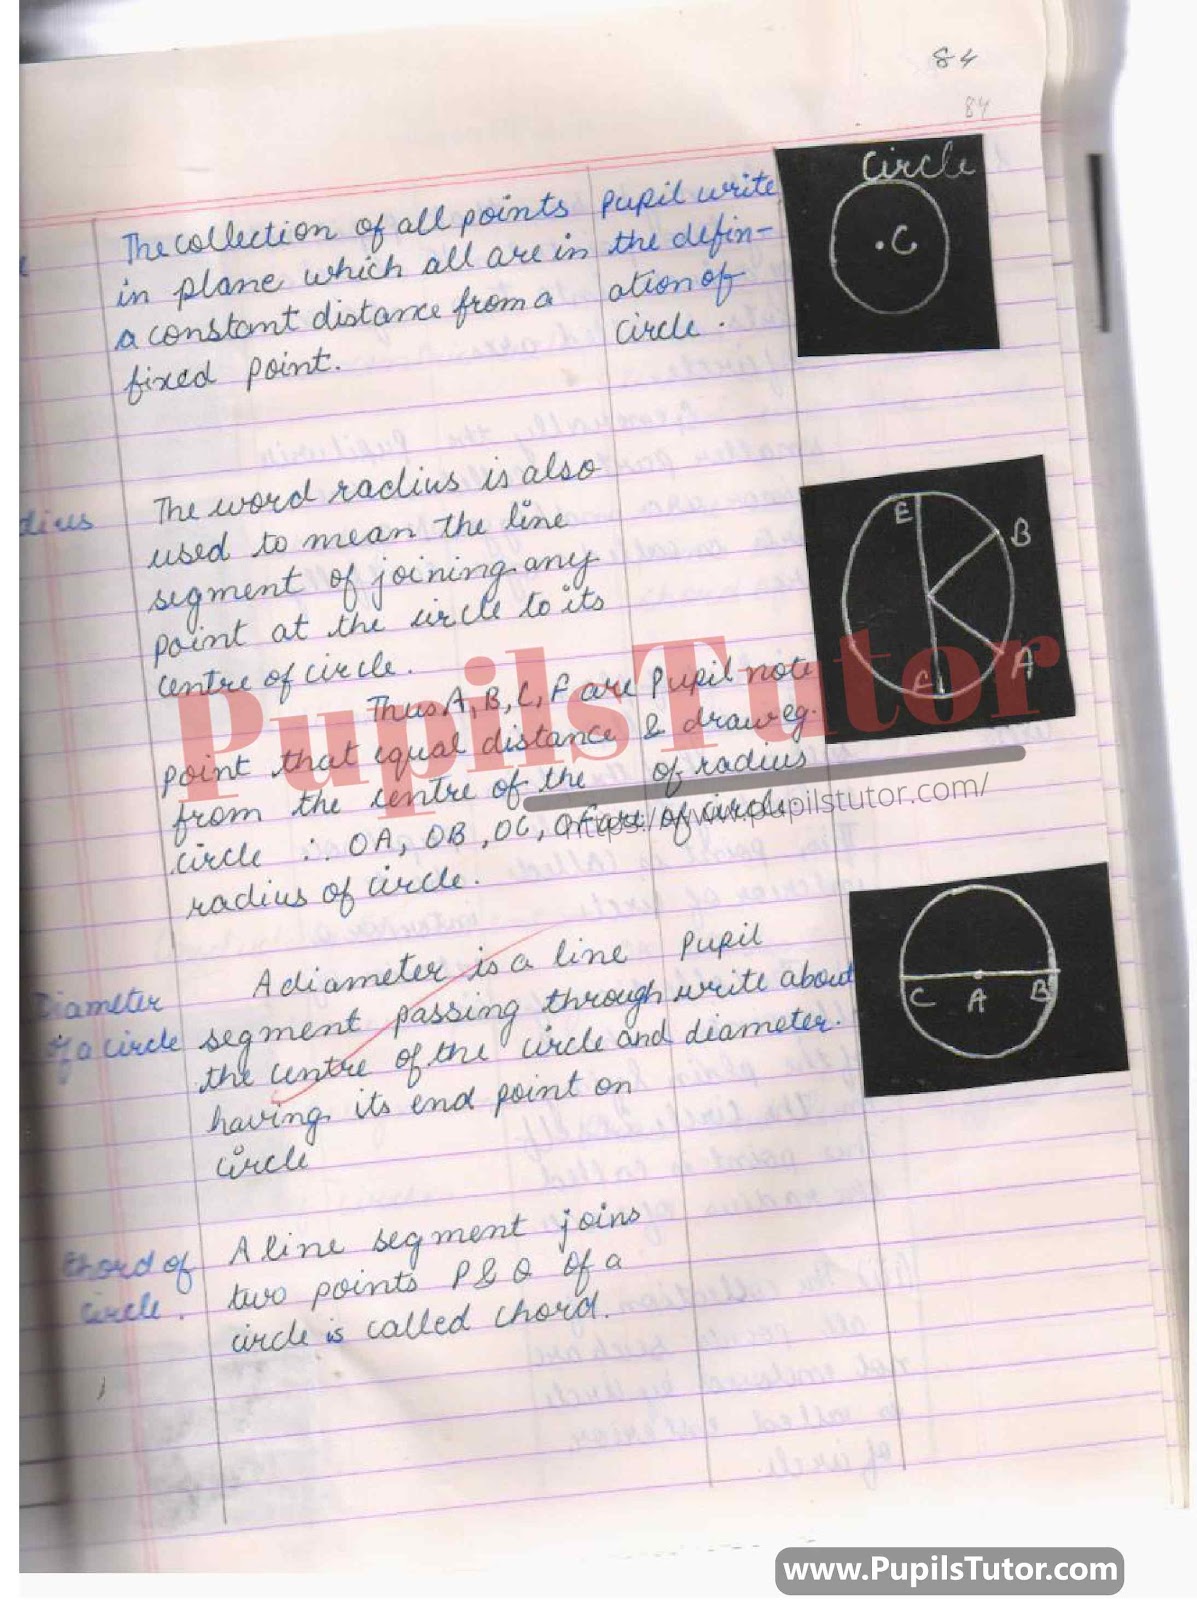 84
84
Circle
.C
The collection of all points
in plane which all are in
a constant distance from a
fixed point.
Pupil write
the defin-
ation of
circle.
dius
The word radius is also
used to mean the line
segment of joining any
point at the circle to its
centre of circle.
Thus A, B, C, F are
point that equal distance
from the centre of the
circle ∴ OA, OB, OC, OF are of circle
radius of circle.
Pupil note
& draw eg.
of radius
E
B
A
F
PupilsTutor
https://www.pupilstutor.com/
Diameter
of a circle
A diameter is a line
segment passing through
the centre of the circle and
having its end point on
circle
Pupil
write about
diameter.
C A B
Chord of
circle.
A line segment joins
two points P & Q of a
circle is called chord.
www.PupilsTutor.com